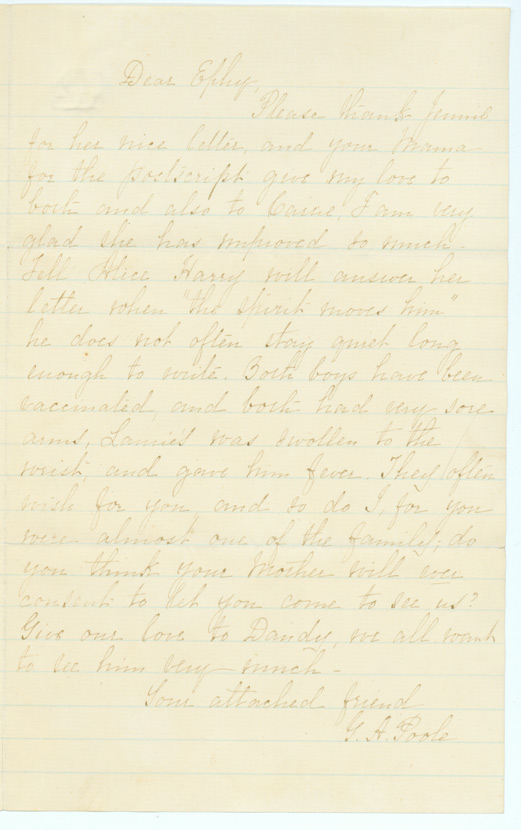 Dear Effey,
Please thank Jennie
for her nice letter, and your Mama
for the postscript give my love to
both and also to Carrie, I am very
glad she has improved so much.
Tell Alice Harry will answer her
letter when "the spirit moves him"
he does not often stay quiet long
enough to write. Both boys have been
vaccinated, and both had very sore
arms, Laurie's was swollen to the
wrist, and gave him fever. They often
wish for you, and so do I, for you
were almost one of the family; do
you think your Mother will ever
consent to let you come to see us?
Give our love to Dandy, we all want
to see him very much -
Your attached friend
G. A. Poole